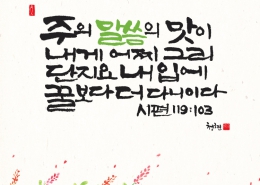 주의 말씀의 맛이
내게 어찌 그리
단지요 내 입에
꿀보다 더 다니이다
시편 119:103